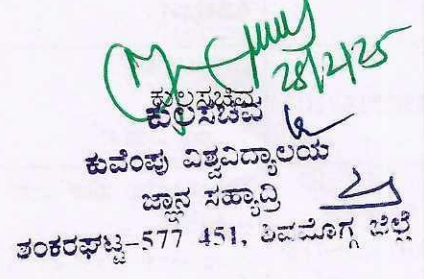 28/2/25
ಕುಲಸಚಿವ
ಕುಲಸಚಿವ
ಕುವೆಂಪು ವಿಶ್ವವಿದ್ಯಾಲಯ
ಜ್ಞಾನ ಸಹ್ಯಾದ್ರಿ
ಶಂಕರಘಟ್ಟ-577 451, ಶಿವಮೊಗ್ಗ ಜಿಲ್ಲೆ